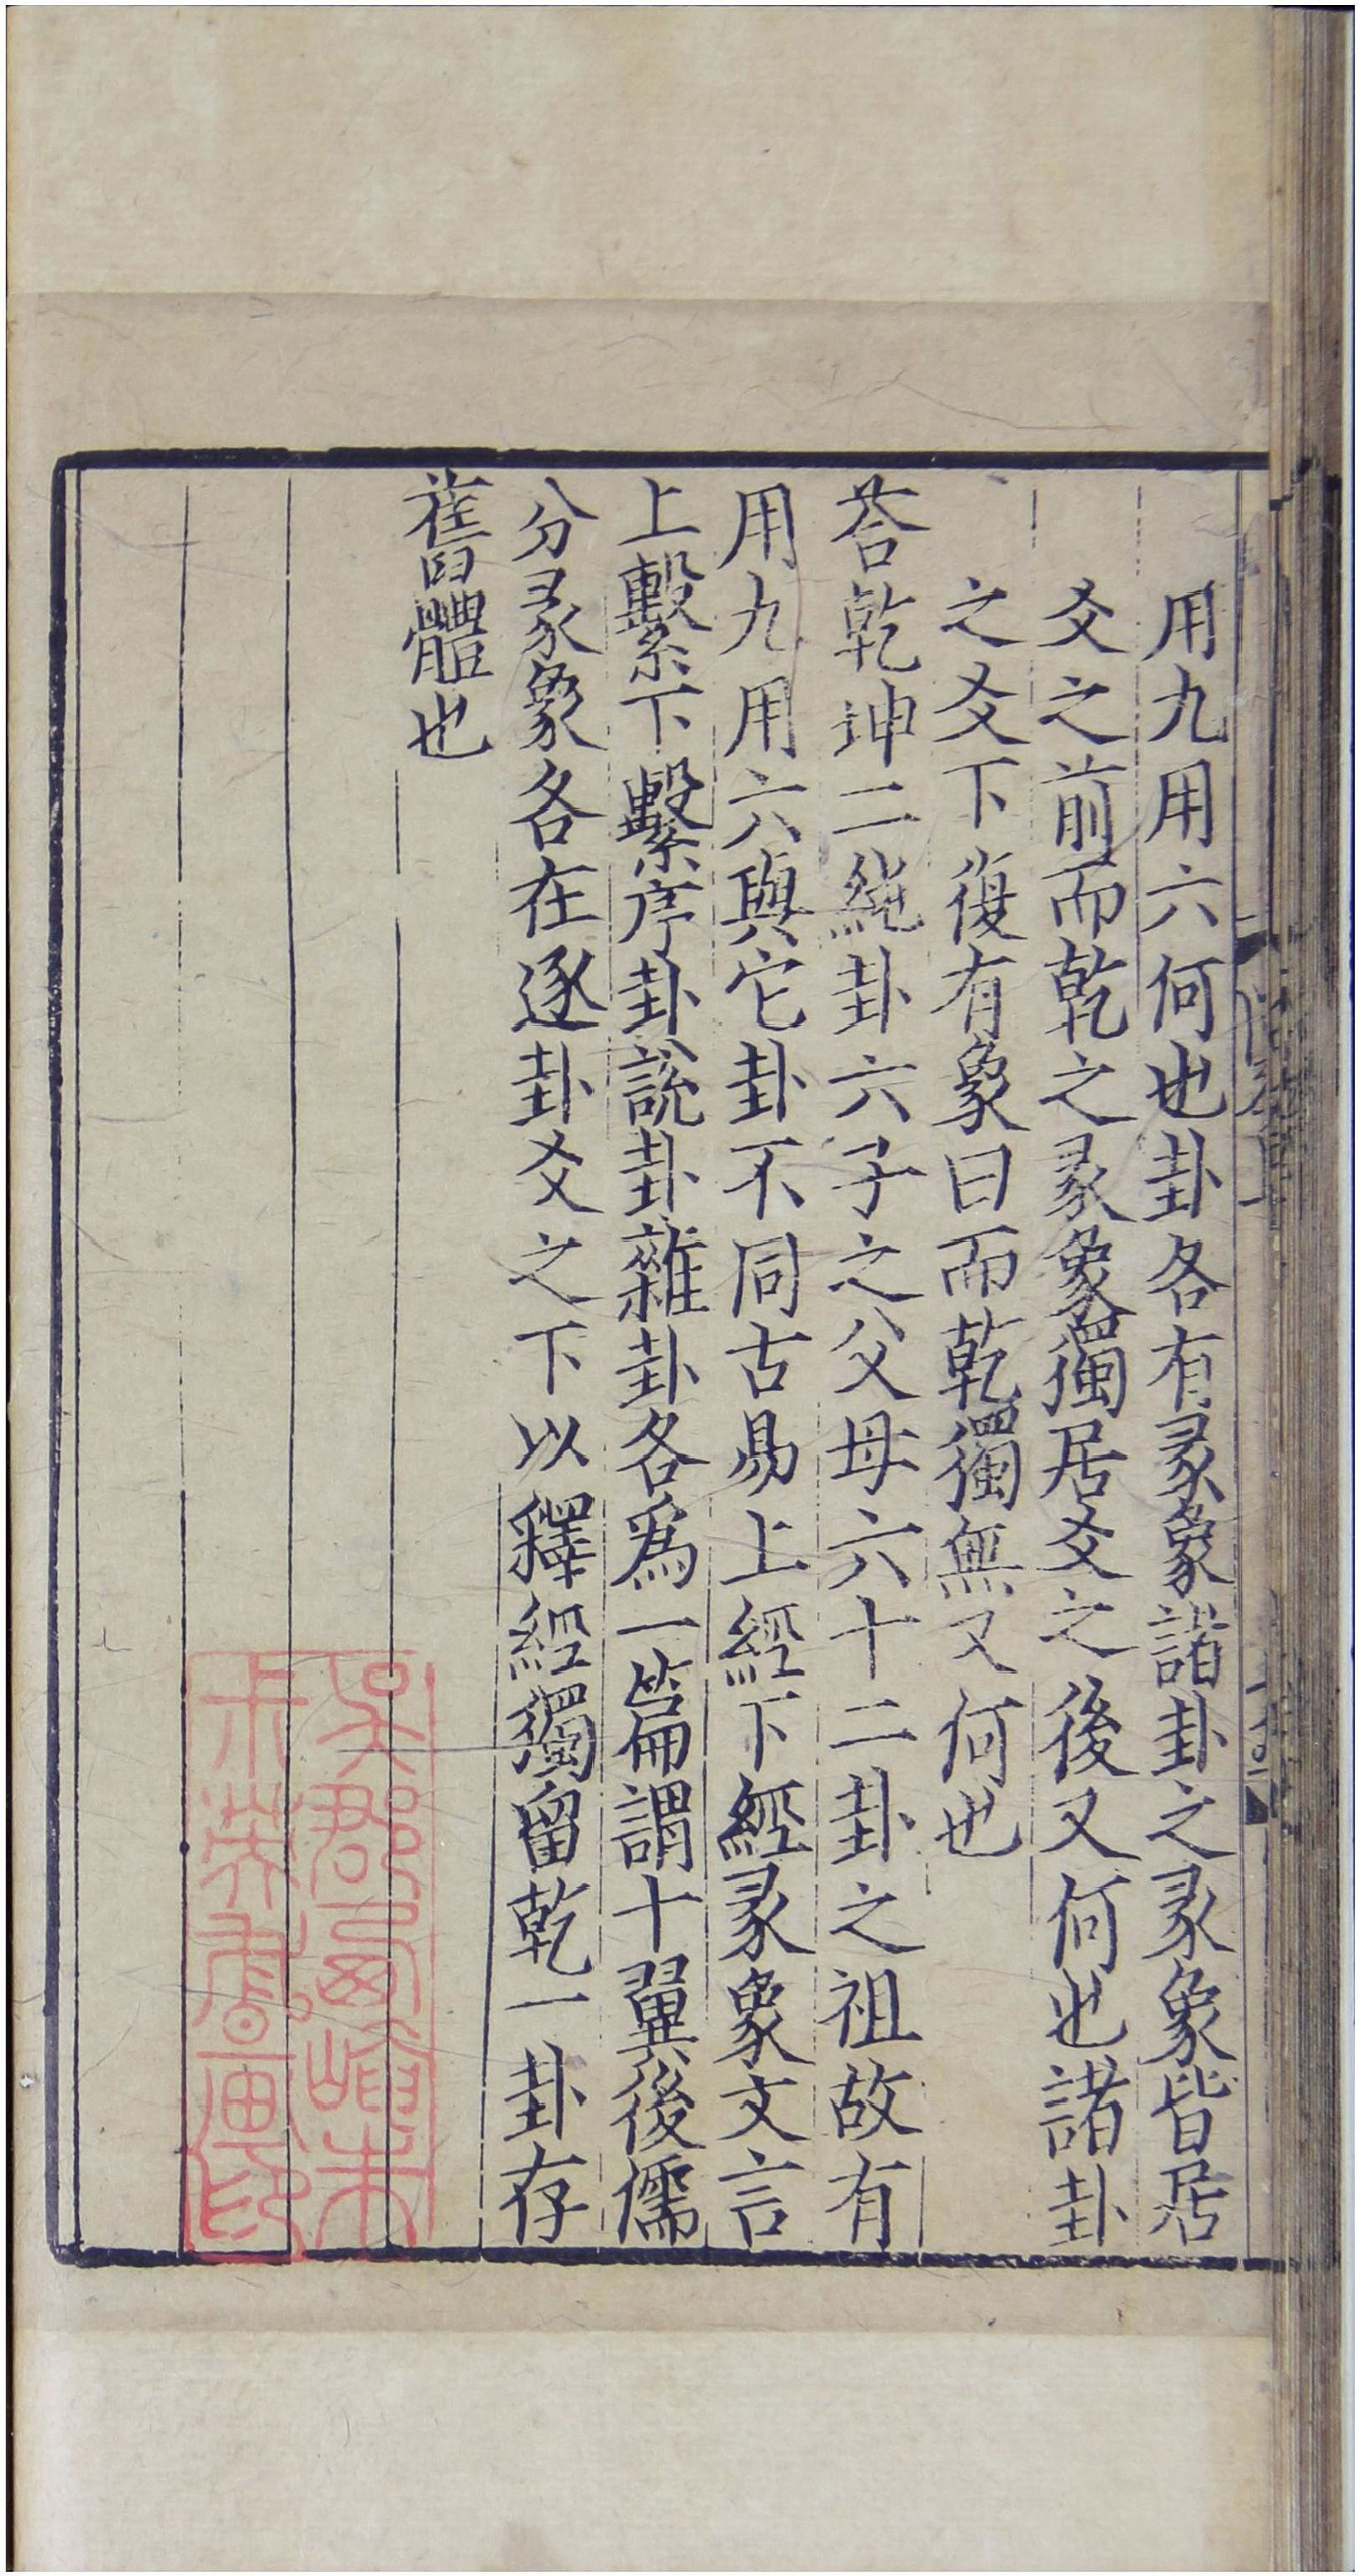 用九用六何也卦各有彖象諸卦之彖象皆居
爻之前而乾之彖象獨居爻之後又何也諸卦
之爻下復有象曰而乾獨無又何也
荅乾坤二純卦六子之父母六十二卦之祖故有
用九用六與它卦不同古易上經下經彖象文言
上繫下繫序卦說卦雜卦各爲一篇謂十翼後儒
分彖象各在逐卦爻之下以釋經獨留乾一卦存
舊體也